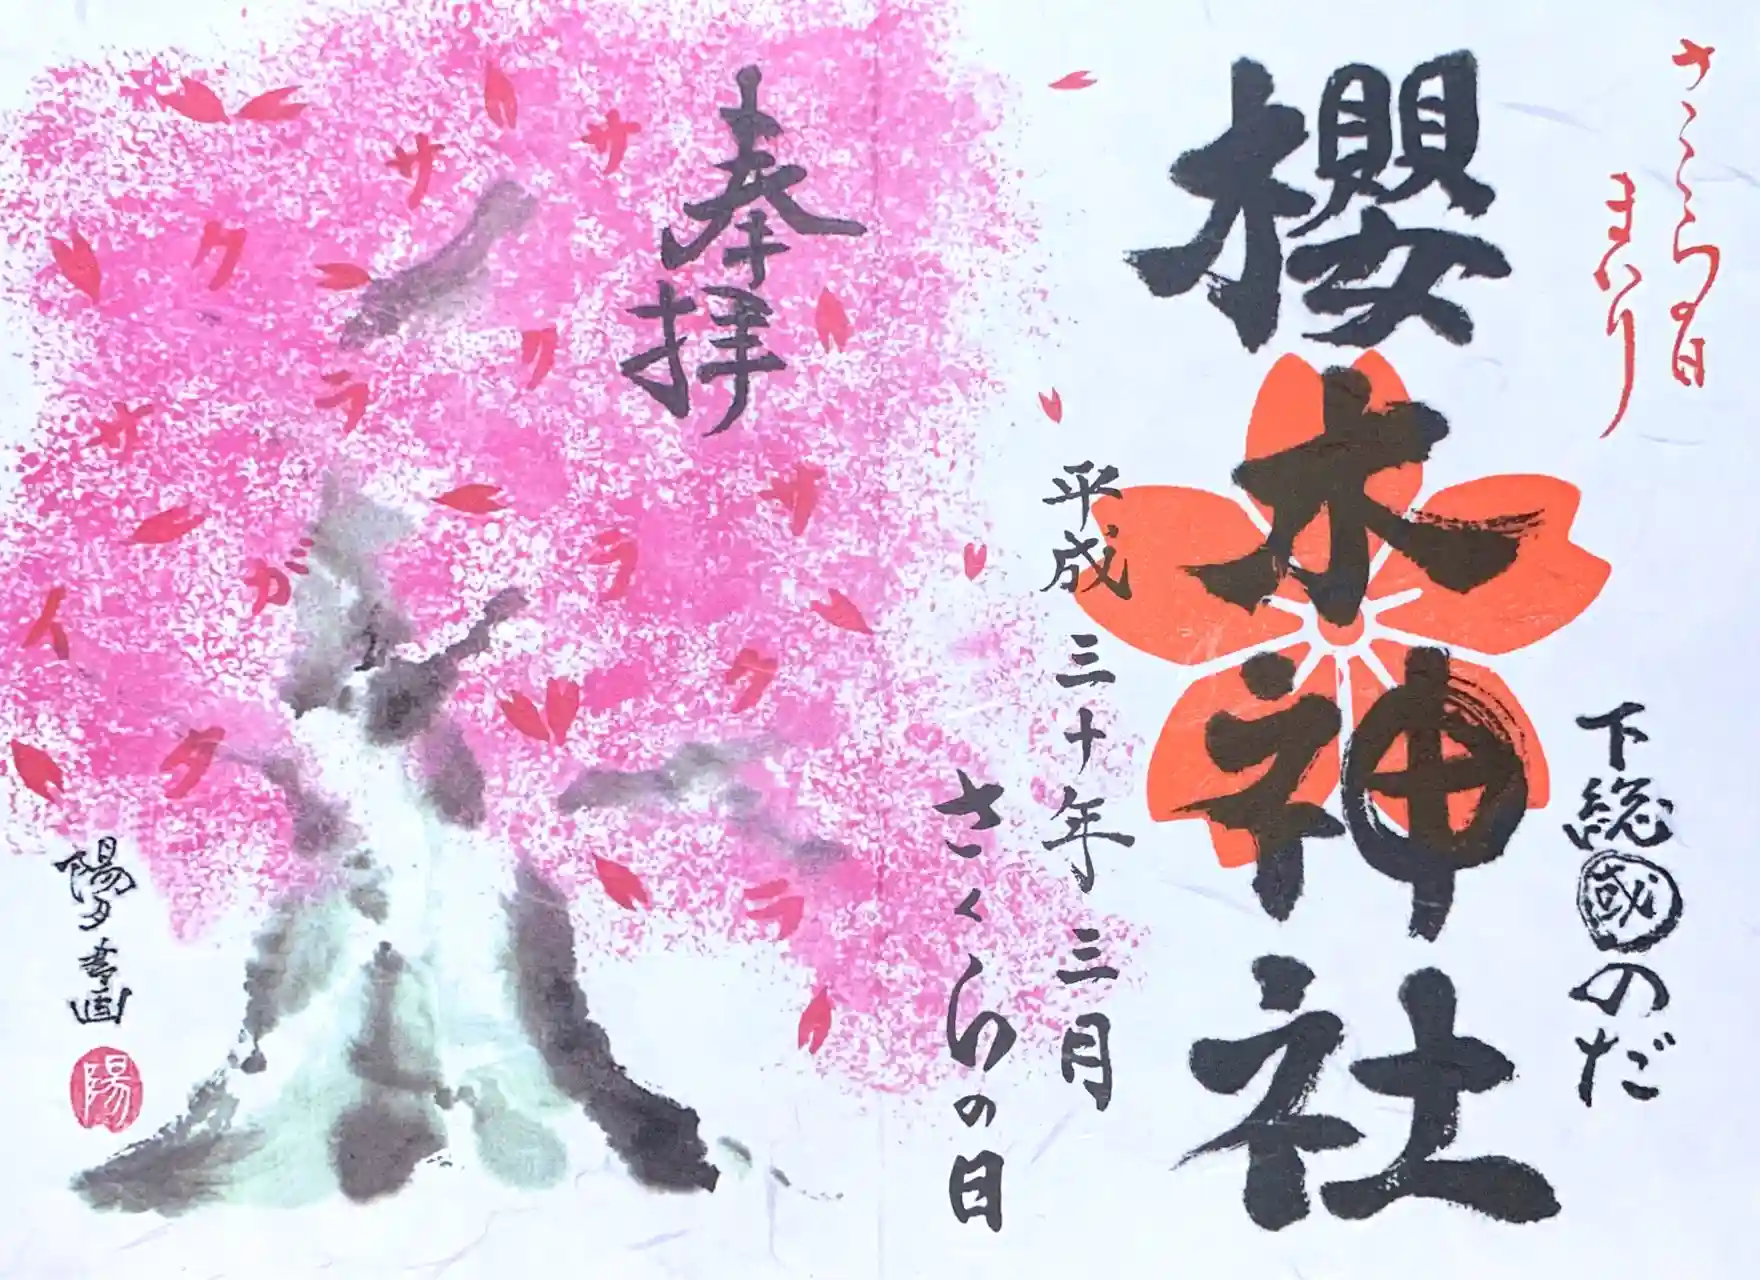 さくらの日
まいり
下総國のだ
櫻木神社
平成三十年三月
さくらの日
奉拝
サ
サ
ク
ク
ラ
サ
サ
ラ
ガ
イ
ク
タ
ラ
陽